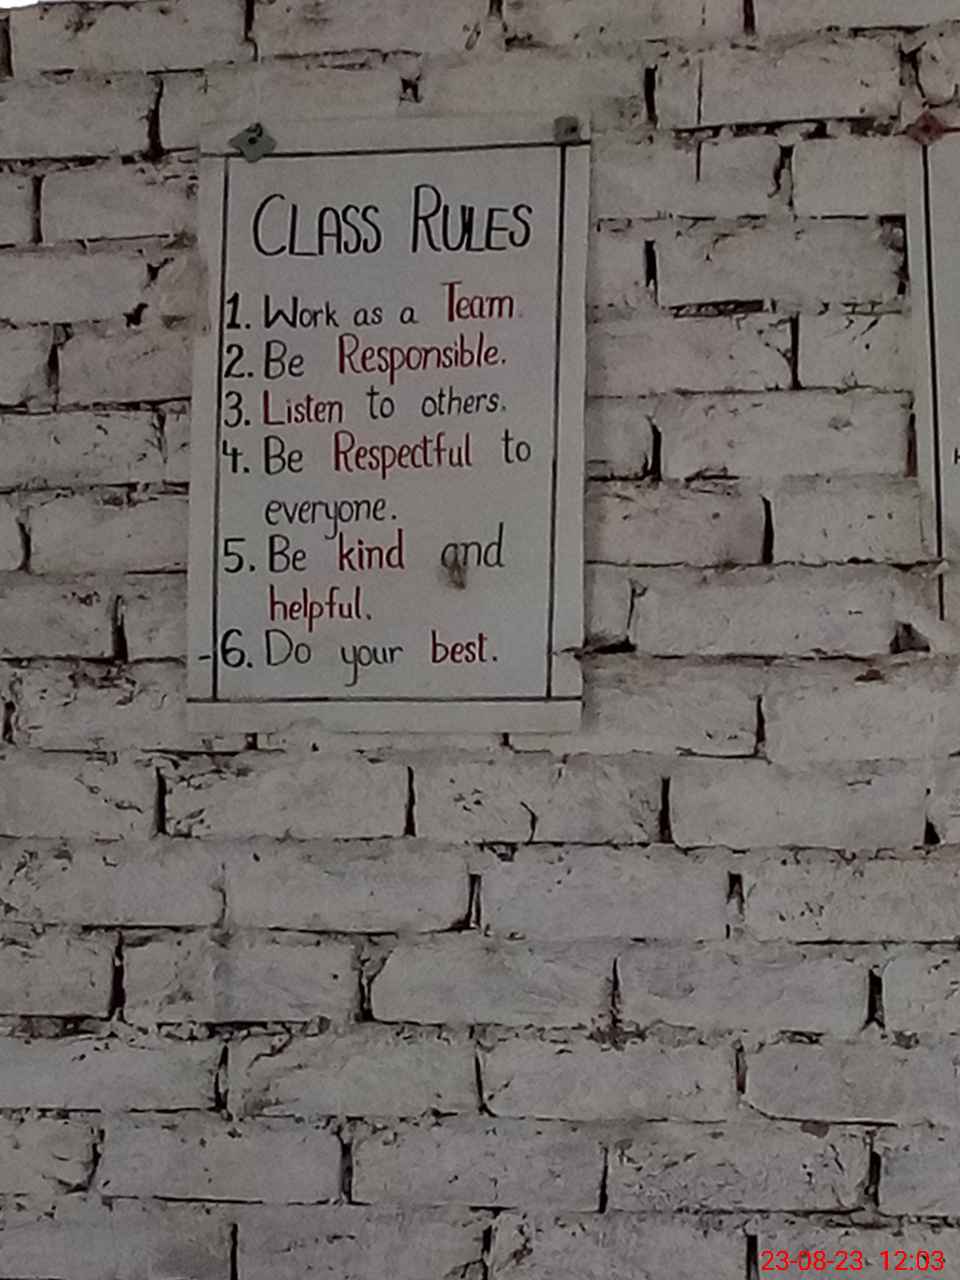 CLASS RULES
1. Work as a Team.
2. Be Responsible.
3. Listen to others.
4. Be Respectful to
everyone.
5. Be kind and
helpful.
6. Do your best.
23-08-23 12:03